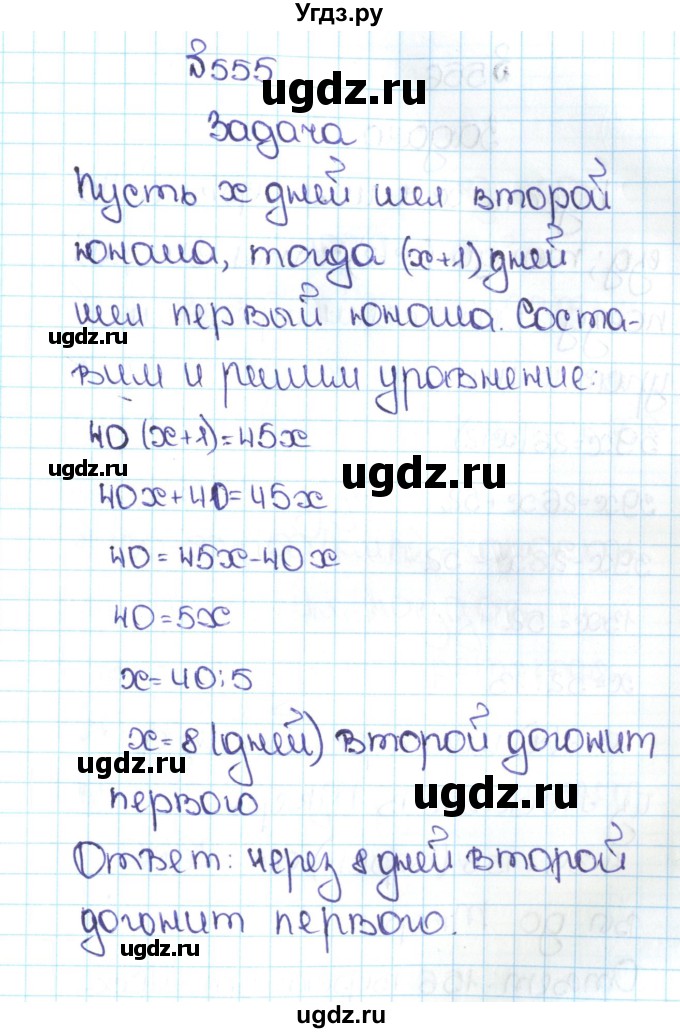 Угдз.ру
№555
ugdz.ru
Задача
Пусть x дней шел второй
юноша, тогда (x+1) дней
шел первый юноша. Соста-
ugdz.ru
вим и решим уравнение:
40 (x+1)=45x
ugdz.ru
ugdz.ru
40x+40=45x
40=45x-40x
40=5x
x=40:5
x=8 (дней) второй догонит
ugdz.ru
первого
ugdz.ru
Ответ: через 8 дней второй
догонит первого.
ugdz.ru
ugdz.ru